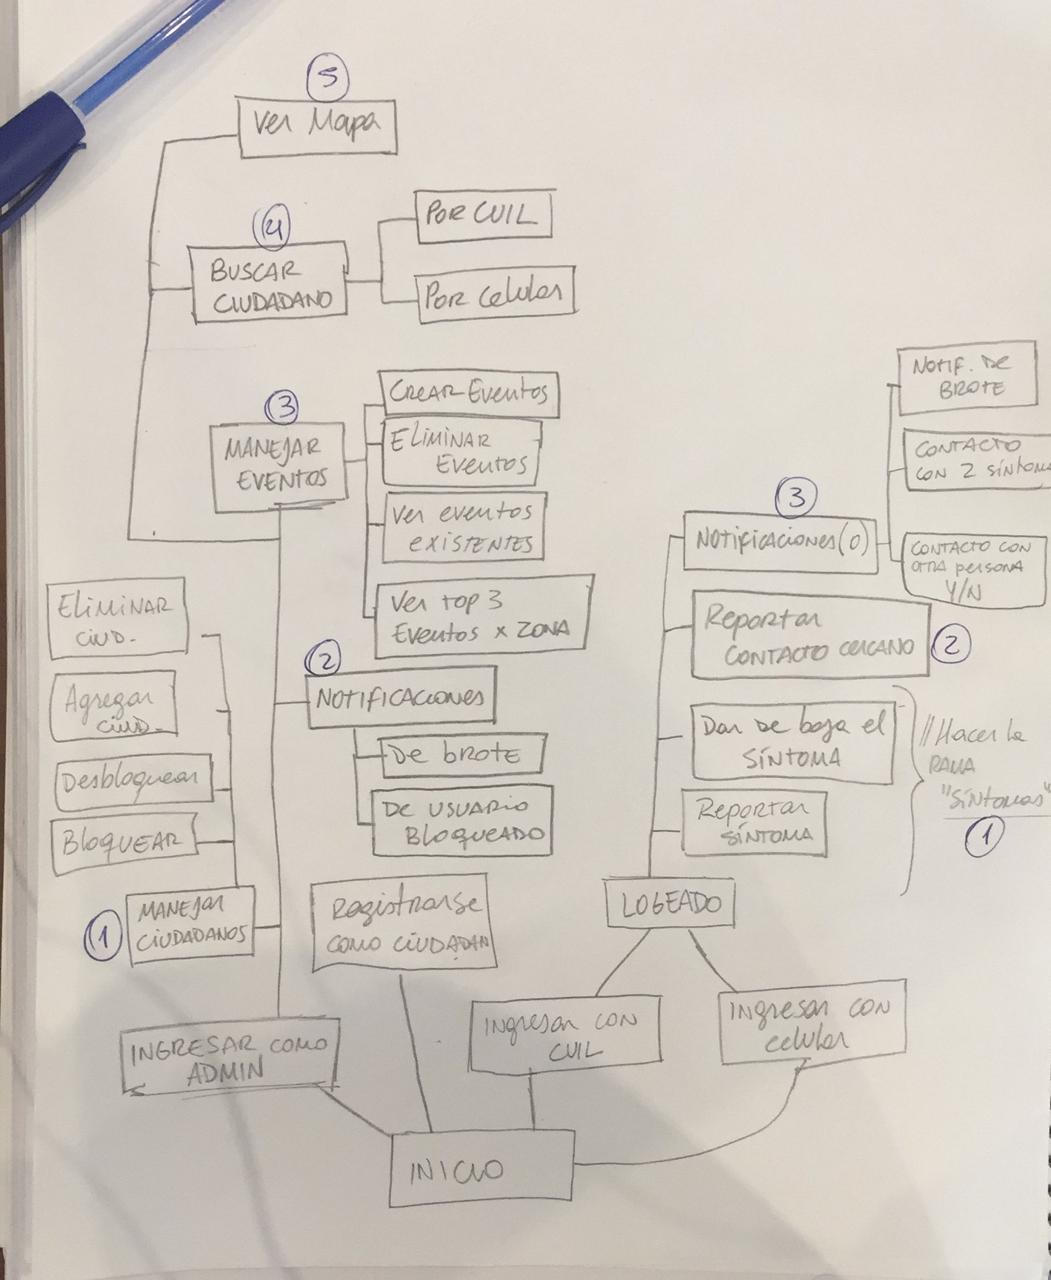 5
Ver Mapa
4
BUSCAR
CIUDADANO
POR CUIL
Por Celular
3
MANEJAR
EVENTOS
CREAR Eventos
ELIMINAR
Eventos
Ver eventos
EXISTENTES
Ver top 3
Eventos x ZONA
2
NOTIFICACIONES
De BROTE
DE USUARIO
BLOQUEADO
ELIMINAR
CIUD.
Agregar
CIUD.
Desbloquear
BLOQUEAR
1
MANEJAR
CIUDADANOS
INGRESAR COMO
ADMIN
Registrarse
COMO CIUDADAN
NOTIF. DE
BROTE
CONTACTO
CON 2 SÍNTOMA
CONTACTO CON
OTRA persona
Y/N
3
NOTIFICACIONES(0)
Reportar
CONTACTO CERCANO
2
Dar de baja el
SÍNTOMA
Reportar
SÍNTOMA
//Hacer la
RAMA
"SÍNTOMAS"
1
LOGEADO
Ingresar CON
CUIL
Ingresar CON
celular
INICIO